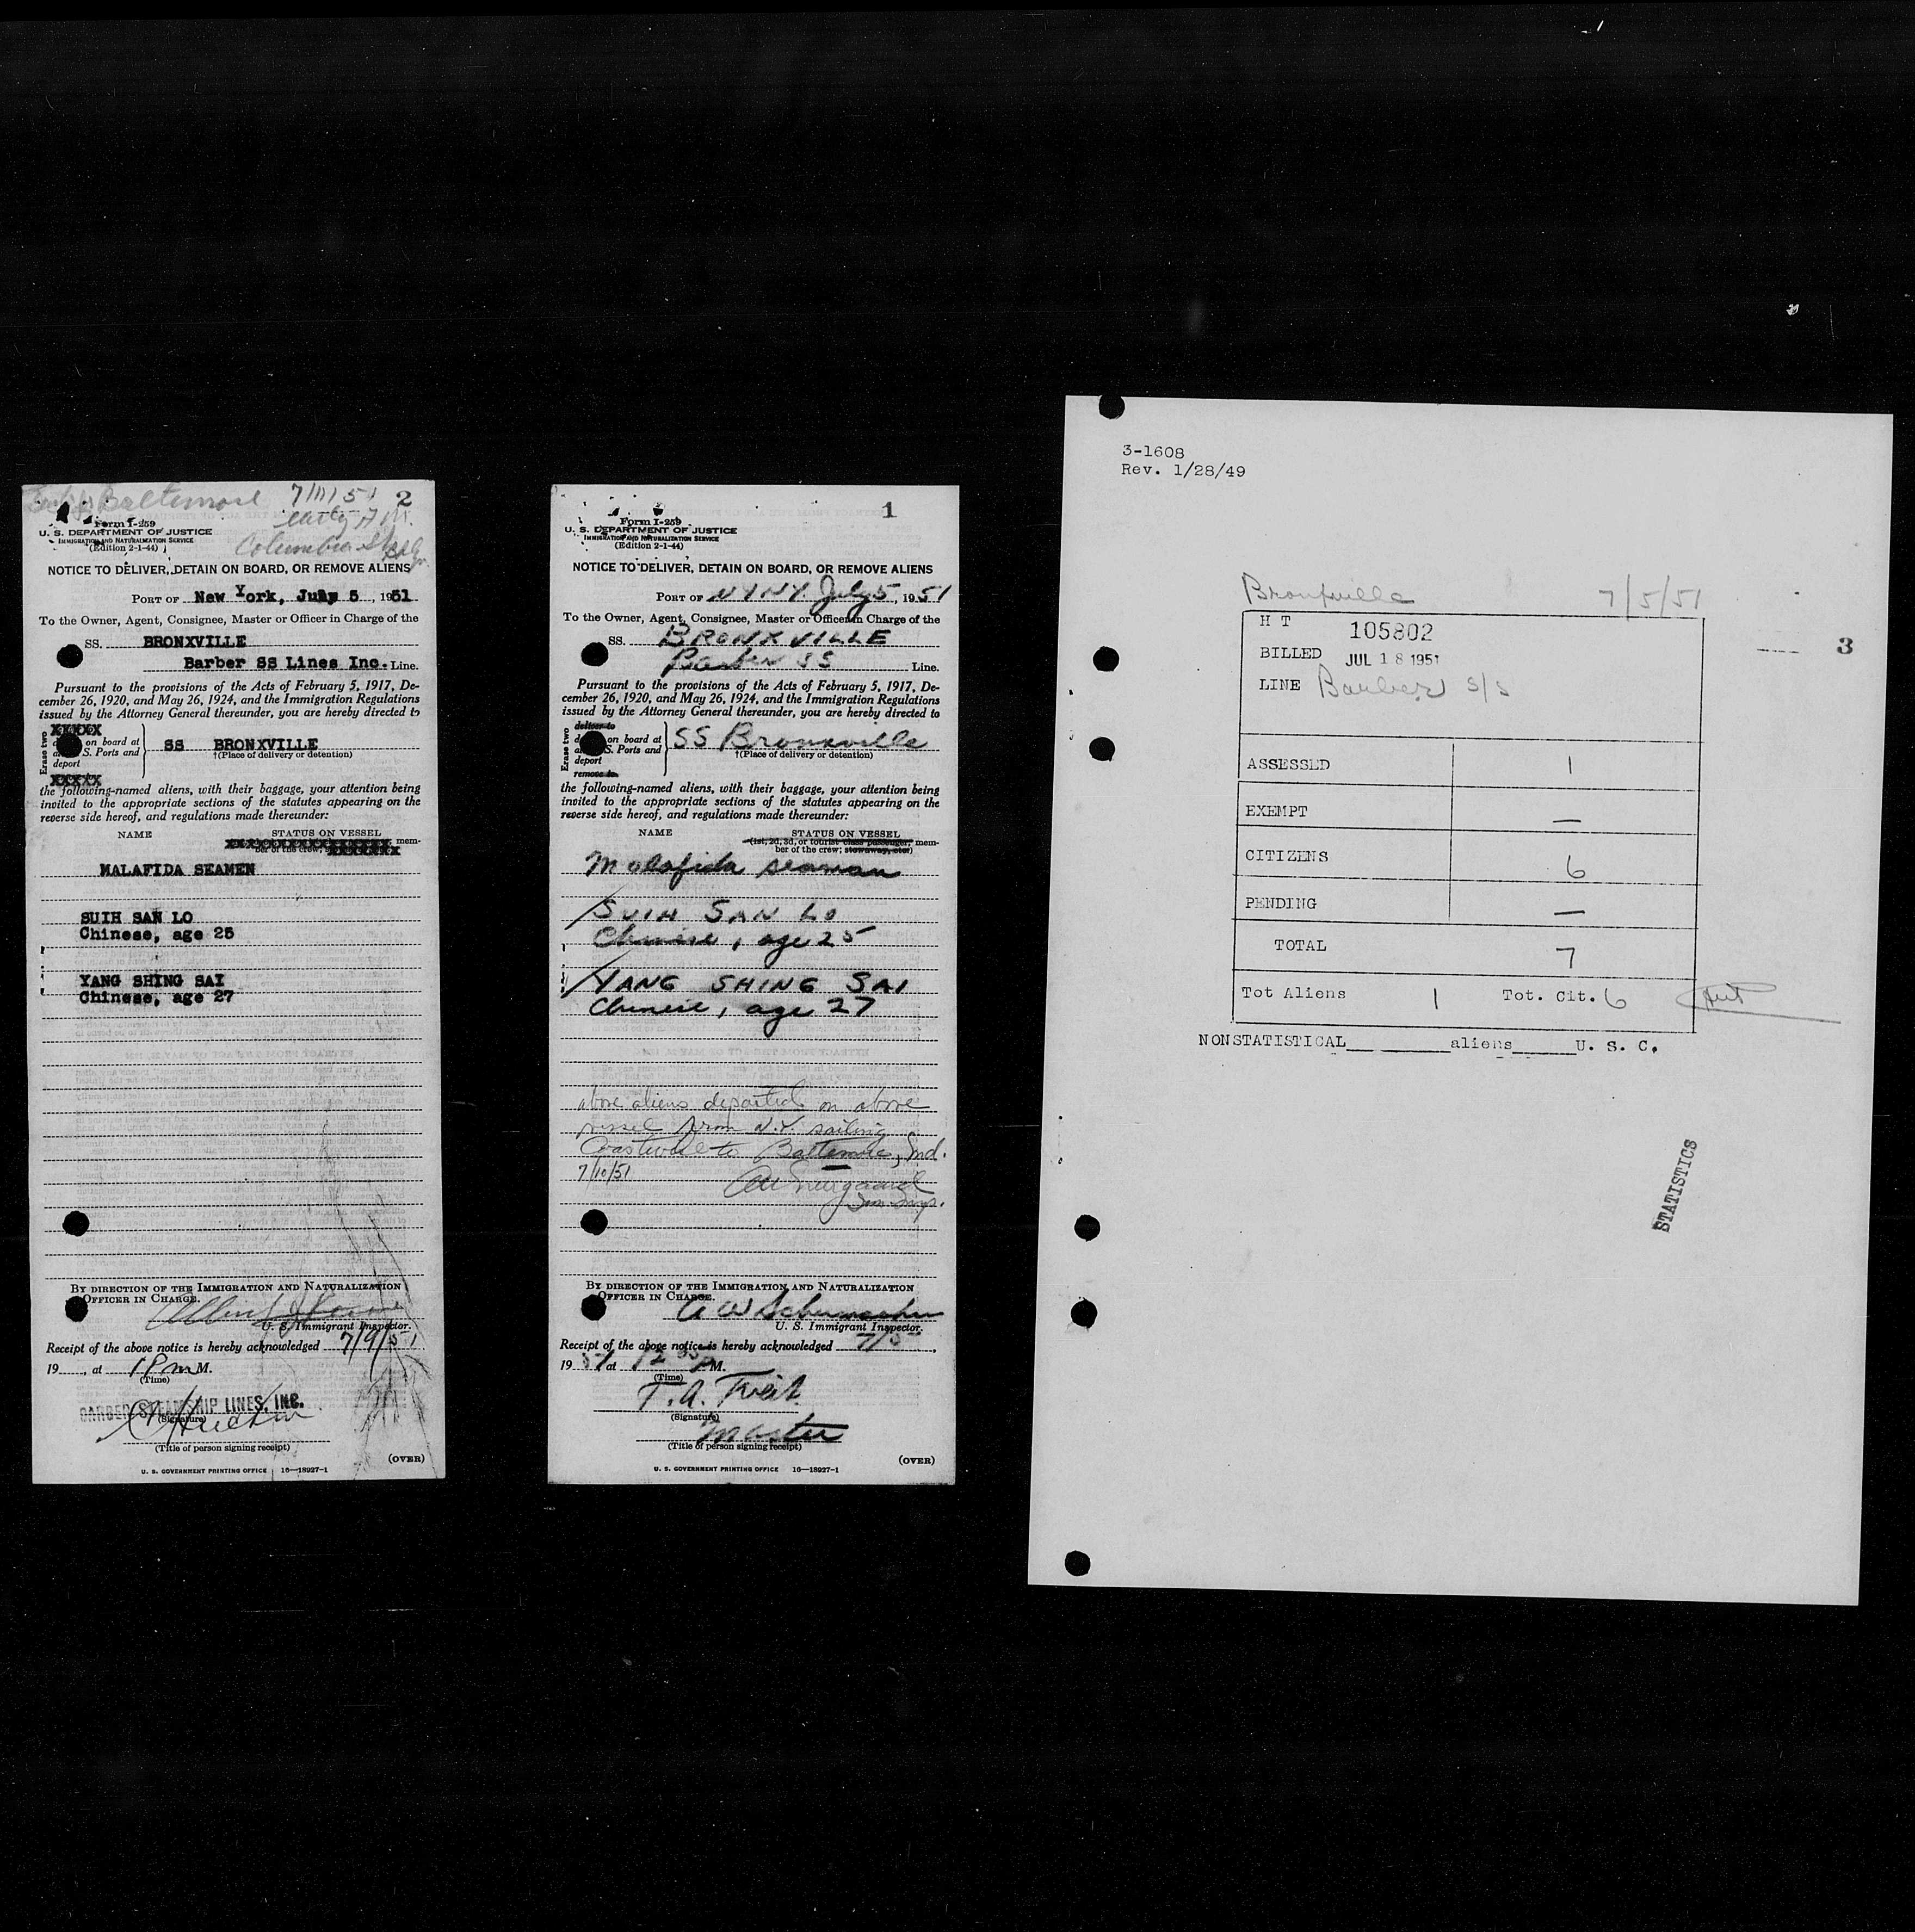 Baltimore 7/11/51 2
early A.M.
Form I-259
U. S. DEPARTMENT OF JUSTICE
IMMIGRATION AND NATURALIZATION SERVICE
(Edition 2-1-44)
Columbia
NOTICE TO DELIVER, DETAIN ON BOARD, OR REMOVE ALIENS
PORT OF New York, July 5, 1951
To the Owner, Agent, Consignee, Master or Officer in Charge of the
SS. BRONXVILLE
Barber SS Lines Inc. Line.
Pursuant to the provisions of the Acts of February 5, 1917, De-
cember 26, 1920, and May 26, 1924, and the Immigration Regulations
issued by the Attorney General thereunder, you are hereby directed to
Erase two
XXXXX
on board at
S. Ports and
deport
XXXXX
SS BRONXVILLE
†(Place of delivery or detention)
the following-named aliens, with their baggage, your attention being
invited to the appropriate sections of the statutes appearing on the
reverse side hereof, and regulations made thereunder:
NAME STATUS ON VESSEL
mem-
ber of the crew;
MALAFIDA SEAMEN
SUIH SAN LO
Chinese, age 25
YANG SHING SAI
Chinese, age 27
BY DIRECTION OF THE IMMIGRATION AND NATURALIZATION
OFFICER IN CHARGE.
U. S. Immigrant Inspector.
Receipt of the above notice is hereby acknowledged 7/9/51
19, at 1 P m M.
(Time)
BARBER STEAMSHIP LINES, INC.
(Signature)
(Title of person signing receipt)
(OVER)
U. S. GOVERNMENT PRINTING OFFICE 16—18927-1
1
Form I-259
U. S. DEPARTMENT OF JUSTICE
IMMIGRATION AND NATURALIZATION SERVICE
(Edition 2-1-44)
NOTICE TO DELIVER, DETAIN ON BOARD, OR REMOVE ALIENS
PORT OF NY NY July 5, 1951
To the Owner, Agent, Consignee, Master or Officer in Charge of the
SS. BRONXVILLE
Barber SS Line.
Pursuant to the provisions of the Acts of February 5, 1917, De-
cember 26, 1920, and May 26, 1924, and the Immigration Regulations
issued by the Attorney General thereunder, you are hereby directed to
Erase two
deliver to
on board at
S. Ports and
deport
remove to
SS Bronxville
†(Place of delivery or detention)
the following-named aliens, with their baggage, your attention being
invited to the appropriate sections of the statutes appearing on the
reverse side hereof, and regulations made thereunder:
NAME STATUS ON VESSEL
(1st, 2d, 3d, or tourist class passenger; mem-
ber of the crew; stowaway, etc.)
Malafida seaman
SUIH SAN LO
Chinese, age 25
YANG SHING SAI
Chinese, age 27
above aliens departed on above
vessel from N.Y. sailing
Coastwise to Baltimore, Md.
7/10/51
Imm. Insp.
BY DIRECTION OF THE IMMIGRATION AND NATURALIZATION
OFFICER IN CHARGE.
A W Schumacher
U. S. Immigrant Inspector.
Receipt of the above notice is hereby acknowledged 7/5,
1951 at 12 M.
(Time)
T. A. Tveit
(Signature)
Master
(Title of person signing receipt)
(OVER)
U. S. GOVERNMENT PRINTING OFFICE 16—18927-1
3-1608
Rev. 1/28/49
Bronxville 7/5/51
H T 105802
BILLED JUL 18 1951
LINE Barber S/S
3
ASSESSED 1
EXEMPT —
CITIZENS 6
PENDING —
TOTAL 7
Tot Aliens 1 Tot. Cit. 6
NONSTATISTICAL aliens U. S. C.
STATISTICS